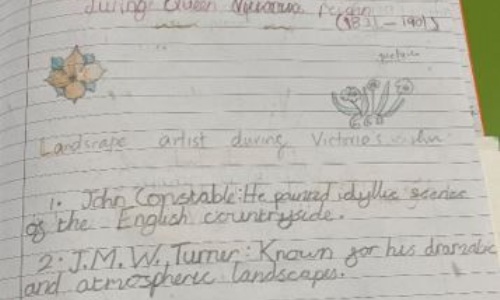 during Queen Victoria Reign
(1831-1901)
Landscape artist during Victoria's
1. John Constable: He painted idyllic scenes
of the English countryside.
2. J.M.W., Turner: Known for his dramatic
and atmospheric landscapes.